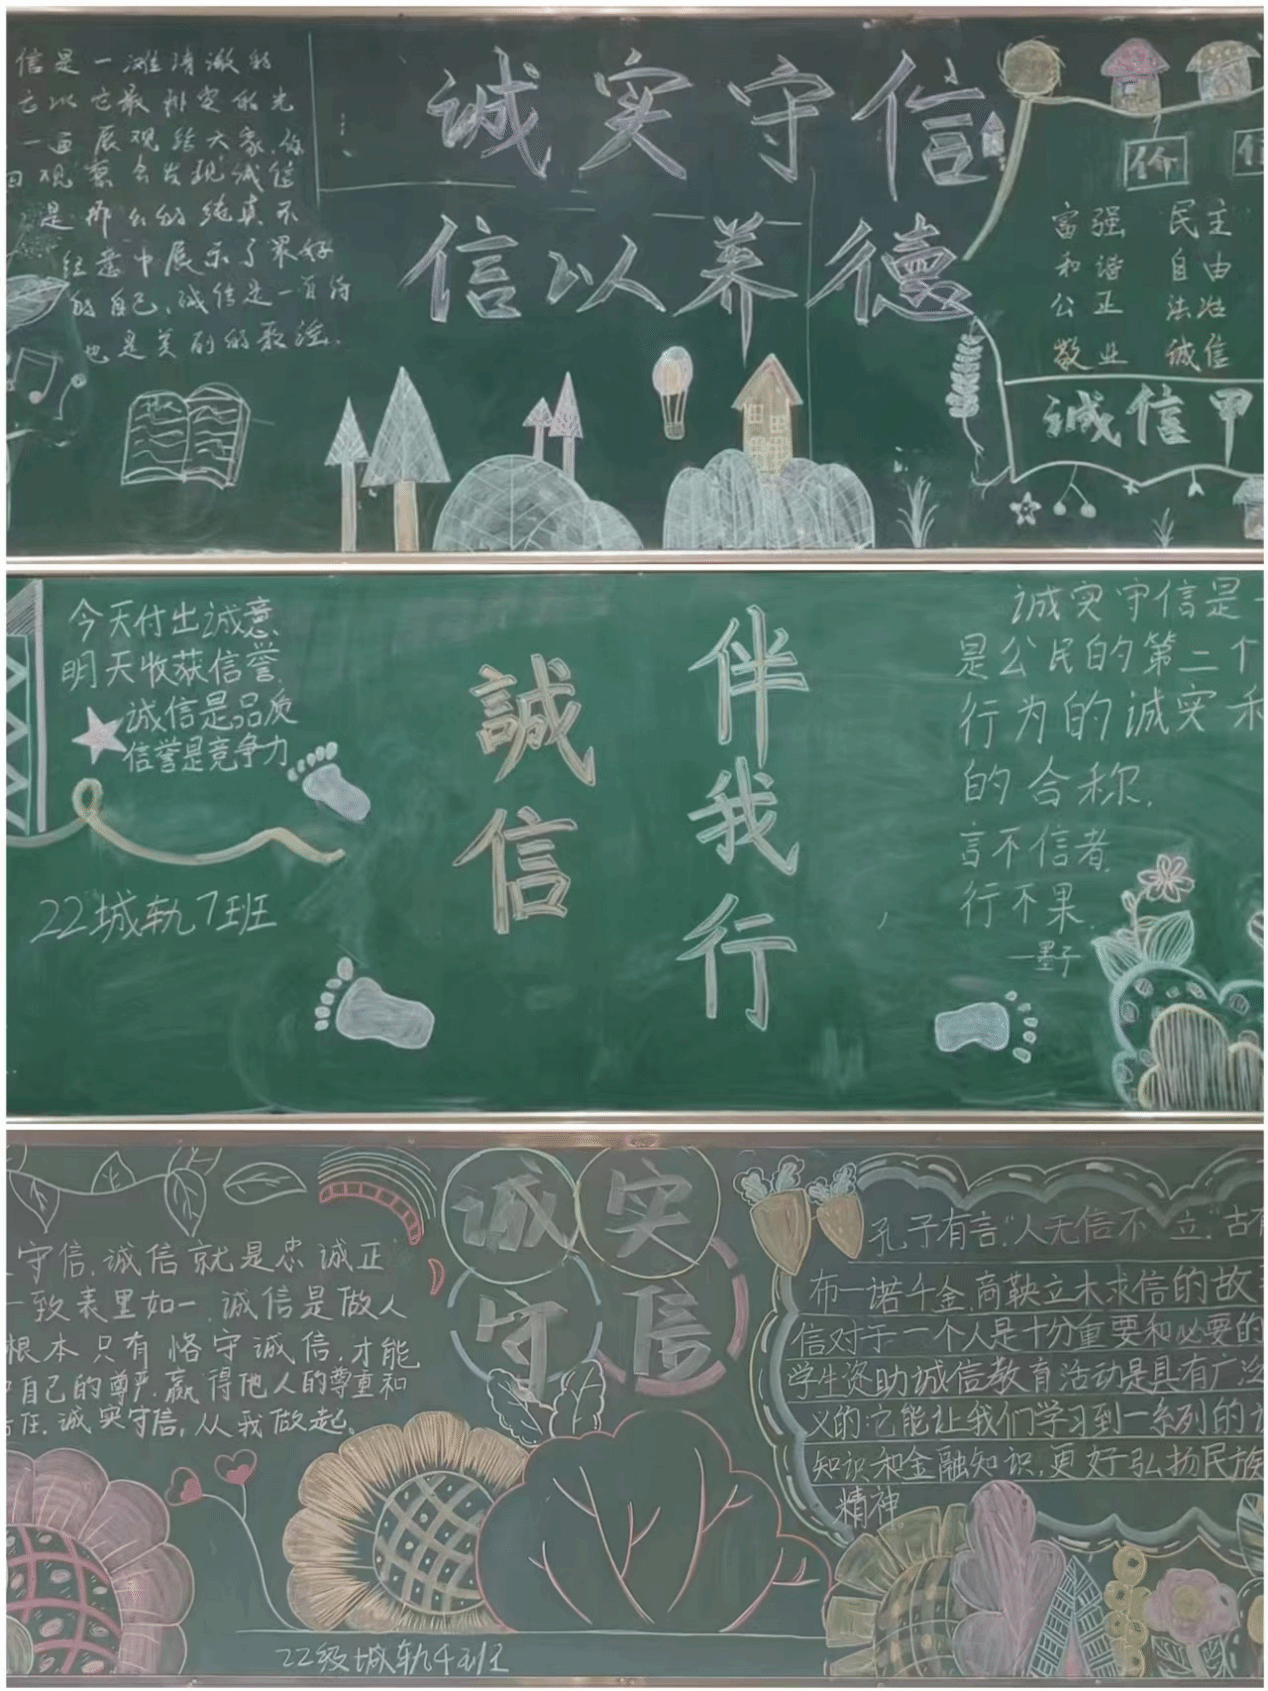 信是一滩清澈的
它以它最朴实的光
一面展观给大家.你
观察会发现诚信
是那么的纯真不
经意中展示了最好
的自己,诚信是一首诗
也是美丽的歌谣.
诚实守信
信以养德
价
富强 民主
和谐 自由
公正 法治
敬业 诚信
诚信甲
今天付出诚意
明天收获信誉
诚信是品质
信誉是竞争力
22城轨7班
誠信
伴我行
诚实守信是一
是公民的第二个
行为的诚实和
的合称.
言不信者,
行不果.
—墨子
守信,诚信就是忠诚正
一致表里如一,诚信是做人
根本只有恪守诚信,才能
自己的尊严.赢得他人的尊重和
任.诚实守信,从我做起。
诚实
守信
22级城轨4班
孔子有言,"人无信不立,古有
布一诺千金,商鞅立木求信的故
信对于一个人是十分重要和必要的
学生资助诚信教育活动是具有广泛
义的:它能让我们学习到一系列的
知识和金融知识,更好弘扬民族
精神